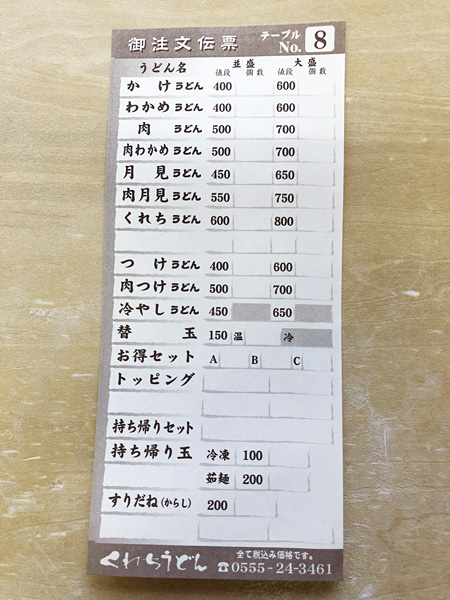 御注文伝票 テーブルNo. 8
うどん名 並盛 大盛
値段 個数 値段 個数
かけうどん 400 600
わかめうどん 400 600
肉うどん 500 700
肉わかめうどん 500 700
月見うどん 450 650
肉月見うどん 550 750
くれちうどん 600 800
つけうどん 400 600
肉つけうどん 500 700
冷やしうどん 450 650
替玉 150 温 冷
お得セット A B C
トッピング
持ち帰りセット
持ち帰り玉 冷凍 100
茹麺 200
すりだね(からし) 200
くれちうどん 全て税込み価格です。
☎0555-24-3461